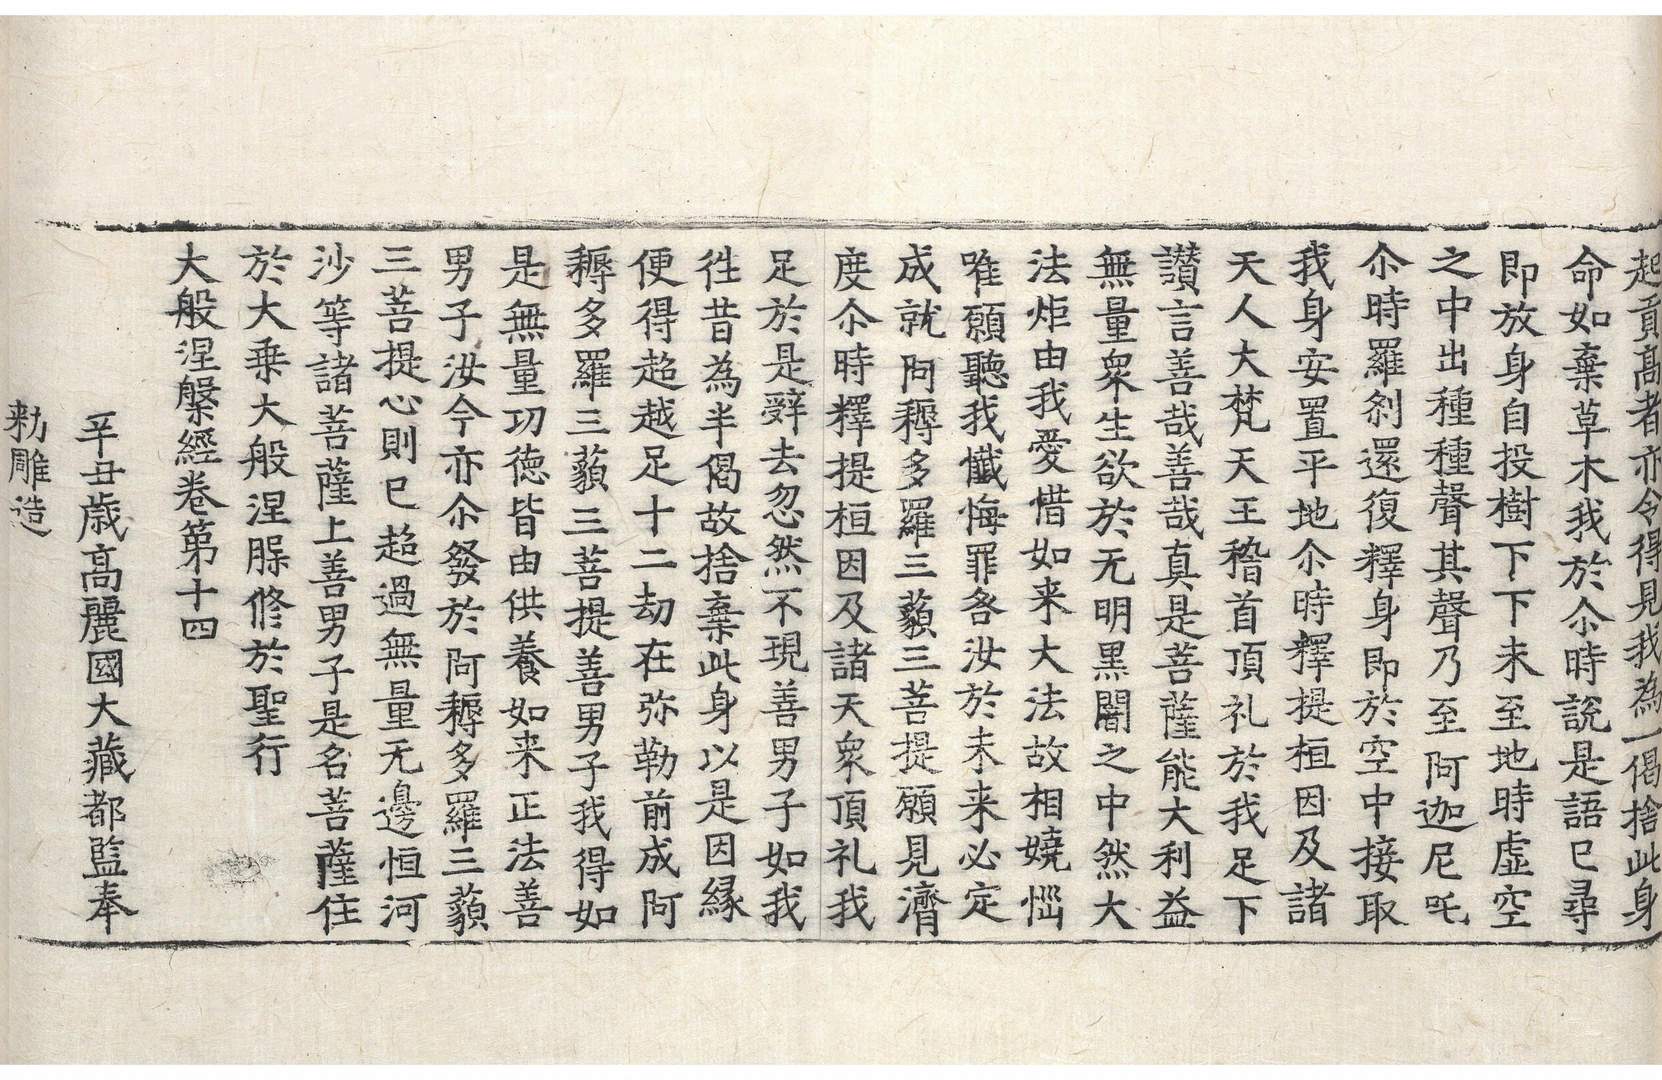 起貢高者亦令得見我為一偈捨此身
命如棄草木我於尒時說是語已尋
即放身自投樹下下未至地時虛空
之中出種種聲其聲乃至阿迦尼吒
尒時羅剎還復釋身即於空中接取
我身安置平地尒時釋提桓因及諸
天人大梵天王稽首頂礼於我足下
讃言善哉善哉真是菩薩能大利益
無量衆生欲於无明黑闇之中然大
法炬由我愛惜如来大法故相嬈惱
唯願聽我懺悔罪咎汝於未来必定
成就阿耨多羅三藐三菩提願見濟
度尒時釋提桓因及諸天衆頂礼我
足於是辝去忽然不現善男子如我
徃昔為半偈故捨棄此身以是因縁
便得超越足十二劫在弥勒前成阿
耨多羅三藐三菩提善男子我得如
是無量功德皆由供養如来正法善
男子汝今亦尒發於阿耨多羅三藐
三菩提心則已超過無量无邊恒河
沙等諸菩薩上善男子是名菩薩住
於大乗大般涅槃脩於聖行
大般涅槃經卷第十四
辛丑歳高麗國大藏都監奉
勑雕造